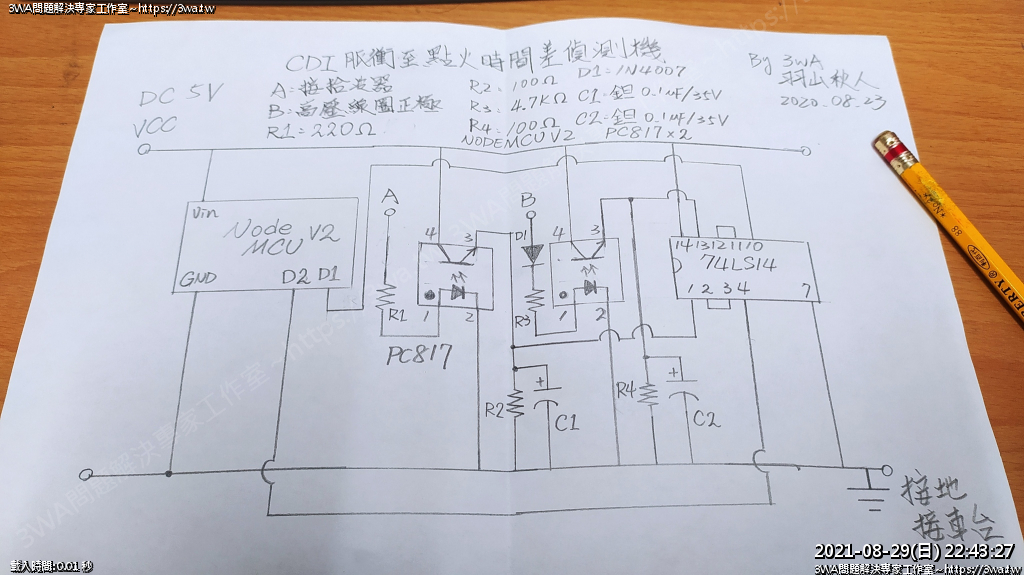 3WA問題解決專家工作室~https://3wa.tw
CDI 脈衝至點火時間差偵測機
By 3WA
羽山秋人
2020.08.23
DC 5V
VCC
A:接拾波器
B:高壓線圈正極
R1=220Ω
R2:100Ω
R3:4.7KΩ
R4:100Ω
D1:1N4007
C1:鉭 0.1uF/35V
C2:鉭 0.1uF/35V
NODEMCU V2
PC817×2
Vin
Node
MCU V2
GND
D2 D1
A
R1
4
3
1
2
PC817
B
D1
R3
4
3
1
2
R2
+
C1
R4
+
C2
14 13 12 11 10
74LS14
1 2 3 4
7
接地
接車台
2021-08-29(日) 22:43:27
載入時間:0.01 秒
3WA問題解決專家工作室~https://3wa.tw